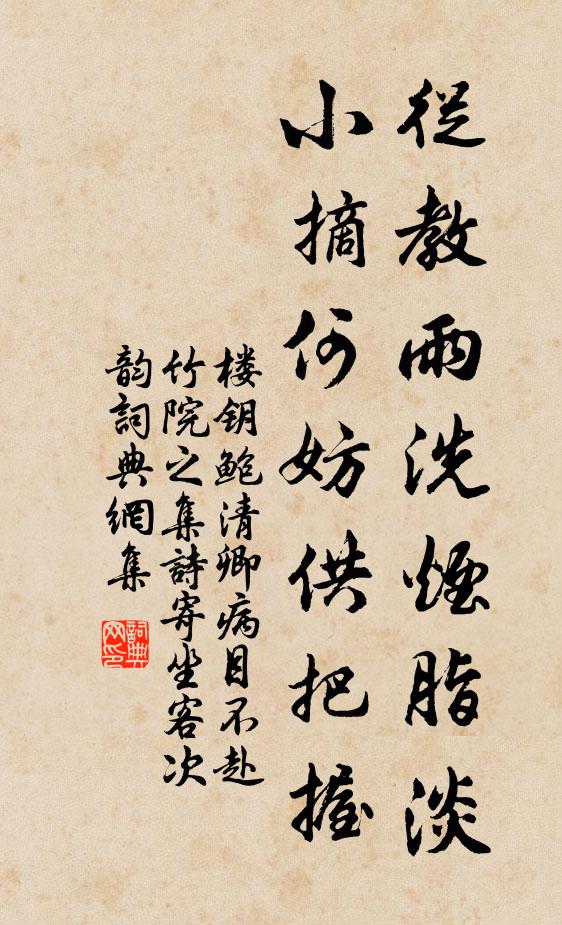 從教雨洗煙脂淡
小摘何妨供把握
楼钥鲍清卿病目不赴
竹院之集詩寄坐客次
韵詞典網集
詞典網印